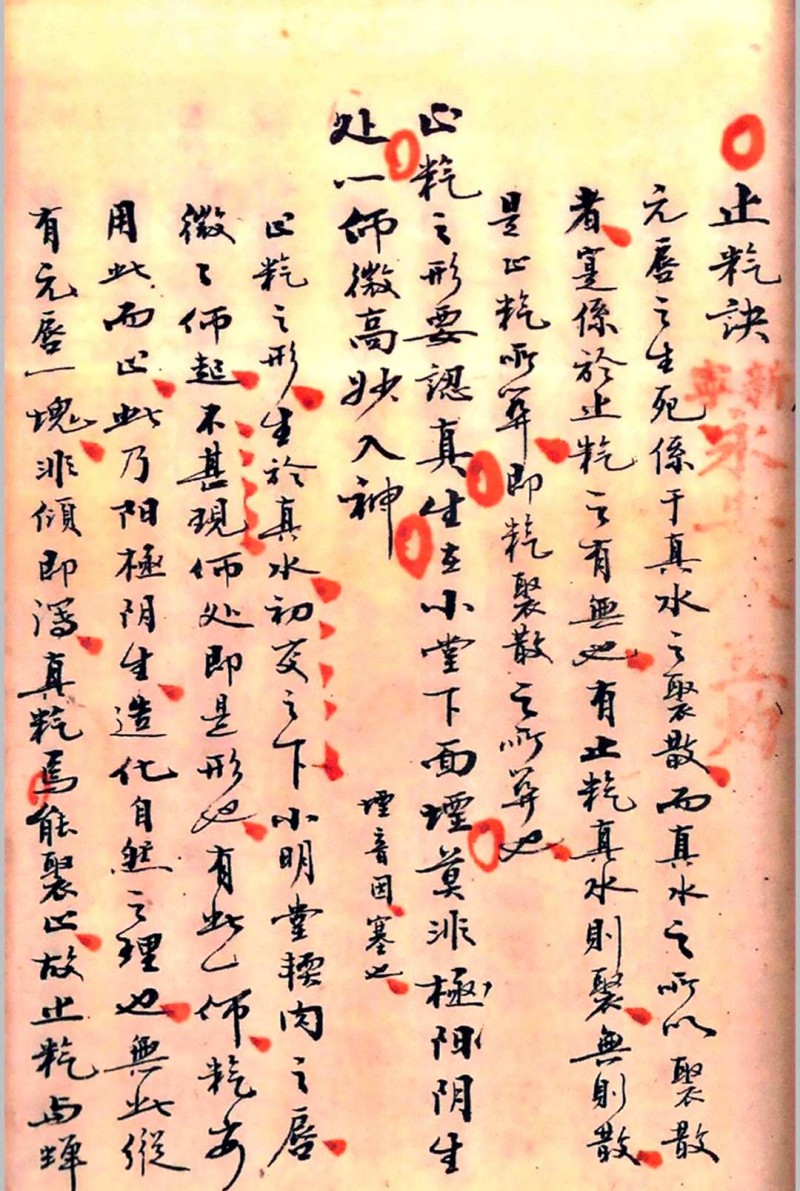 止氣訣
元唇之生死係于真水之聚散而真水之所以聚散
者寔係於止氣之有無也有止氣真水則聚無則散
是止氣所算即氣聚散之所算也
止氣之形要認真生在小堂下面堙莫非極陽阴生
堙音因塞也
处一師微高妙入神
止氣之形生於真水初交之下小明堂輭肉之唇
微之师起不甚現师处即是形也有此一师氣安
用此而止此乃阳極阴生造化自然之理也無此縱
有元唇一塊非傾即瀉真氣焉能聚止故止氣与蟬